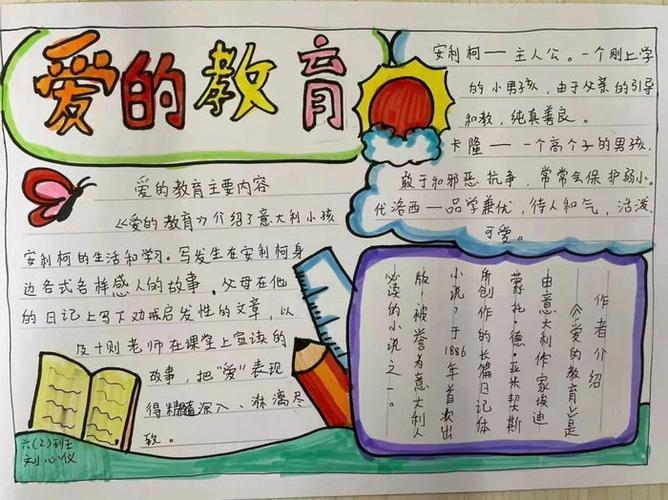 爱的教育
安利柯——主人公。一个刚上学
的小男孩，由于父亲的引导
和教，纯真善良。
卡隆——一个高个子的男孩，
敢于和邪恶抗争，常常会保护弱小。
代洛西——品学兼优，待人和气，活泼
可爱。
爱的教育主要内容
《爱的教育》介绍了意大利小孩
安利柯的生活和学习。写发生在安利柯身
边各式各样感人的故事，父母在他
的日记上写下劝戒启发性的文章，以
及十则老师在课堂上宣读的
故事，把“爱”表现
得精髓深入、淋漓尽
致。
作者介绍
《爱的教育》是
由意大利作家埃迪
蒙托·德·亚米契斯
所创作的长篇日记体
小说，于1886年首次出
版，被誉为意大利人
必读的小说之一。
六(2)班
刘心仪